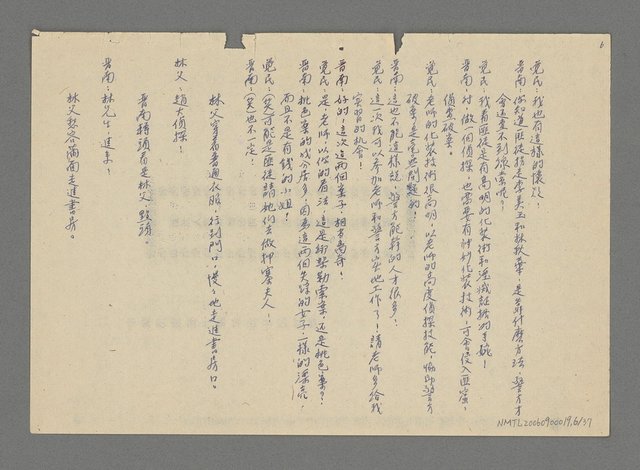 6
覺民：我也有這樣的懷疑！
晋南：你知道，匪徒指走李美玉和林秋華，是用什麼方法，警方才
會追查不到線索呢？
覺民：我看匪徒是有高明的化裝術和湮滅証据的手腕！
晋南：對，做一個偵探，也需要有神妙化裝技術，才會侵入匪窟，
偵查破案。
覺民：老師的化裝技術很高明，以老師的高度偵探技能，協助警方
破案，是毫無問題的！
晋南：這也不能這樣說，警方能幹的人才很多！
覺民：這次我可以參加老師和警方實地工作了！請老師多給我
實習的机會！
晋南：好的！這次這兩個案子，相當离奇！
覺民：是，老師！以你的看法，這是綁架勒索案，还是桃色案？
晋南：桃色案的成分居多，因為這兩個失踪的女子，一樣的漂亮，
而且不是有錢的小姐！
覺民：（笑）可能是匪徒請她们去做押寨夫人！
晋南：（笑）也不一定！
林父穿着普通衣服，拉到門口，慢々地走進書房口。
林父：趙大偵探！
晋南轉頭看是林父，點頭。
晋南：林先生，進來！
林父愁容滿面走進書房。
NMTL20060900019,6/37